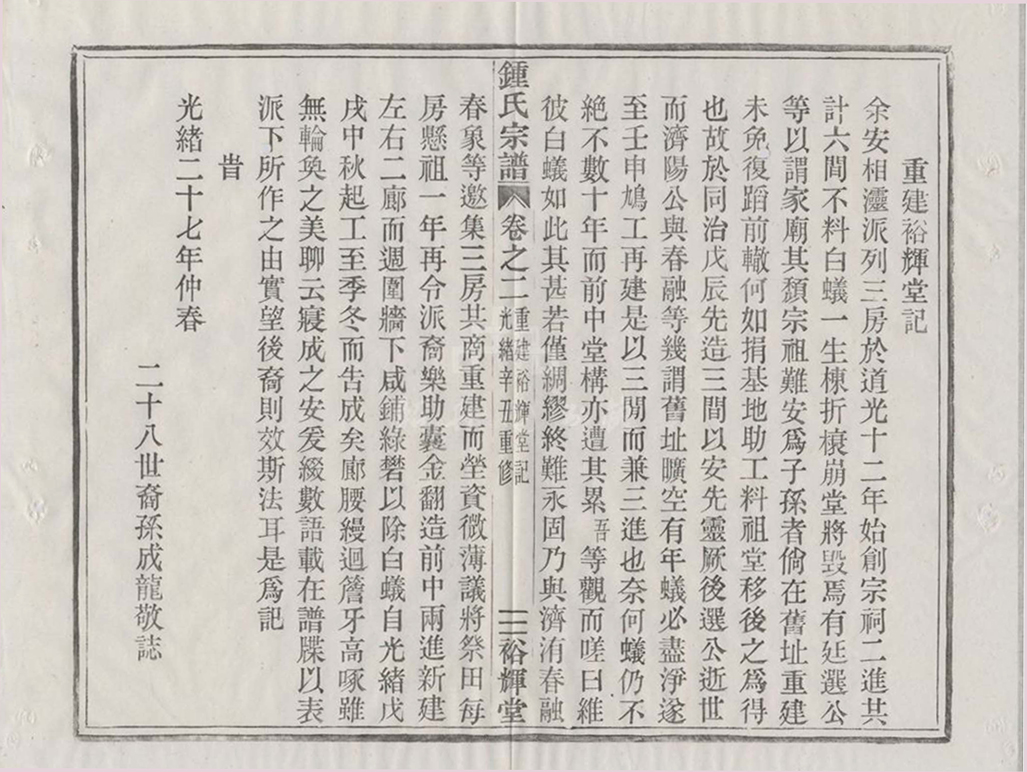 重建裕輝堂記
余安相灋派列三房於道光十二年始創宗祠二進共
計六間不料白蟻一生棟折榱崩堂將毀焉有廷選公
等以謂家廟其頹宗祖難安爲子孫者倘在舊址重建
未免復蹈前轍何如捐基地助工料祖堂移後之爲得
也故於同治戊辰先造三間以安先靈厥後選公逝世
而濟陽公與春融等幾謂舊址曠空有年蟻必盡淨遂
至壬申鳩工再建是以三閒而兼三進也奈何蟻仍不
絶不數十年而前中堂構亦遭其累吾等觀而嗟曰維
彼白蟻如此其甚若僅綢繆終難永固乃與濟洧春融
鍾氏宗譜 卷之二 重建裕輝堂記 光緒辛丑重修 三 裕輝堂
春泉等邀集三房共商重建而塋資微薄議將祭田每
房懸祖一年再令派裔樂助囊金翻造前中兩進新建
左右二廊而週圍牆下咸鋪綠礬以除白蟻自光緒戊
戌中秋起工至季冬而告成矣廊腰縵迴簷牙高啄雖
無輪奐之美聊云寢成之安爰綴數語載在譜牒以表
派下所作之由實望後裔則效斯法耳是爲記
旹
光緒二十七年仲春
二十八世裔孫成龍敬誌